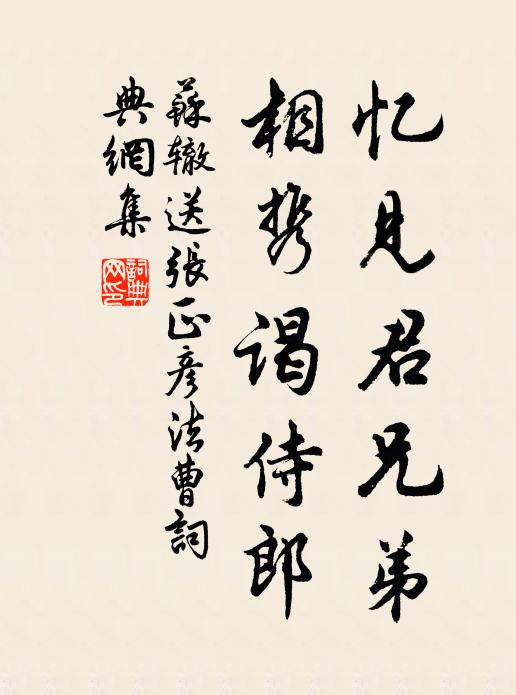 忆见君兄弟
相携谒侍郎
蘇辙送張正彦法曹詞
典網集
詞典
网印